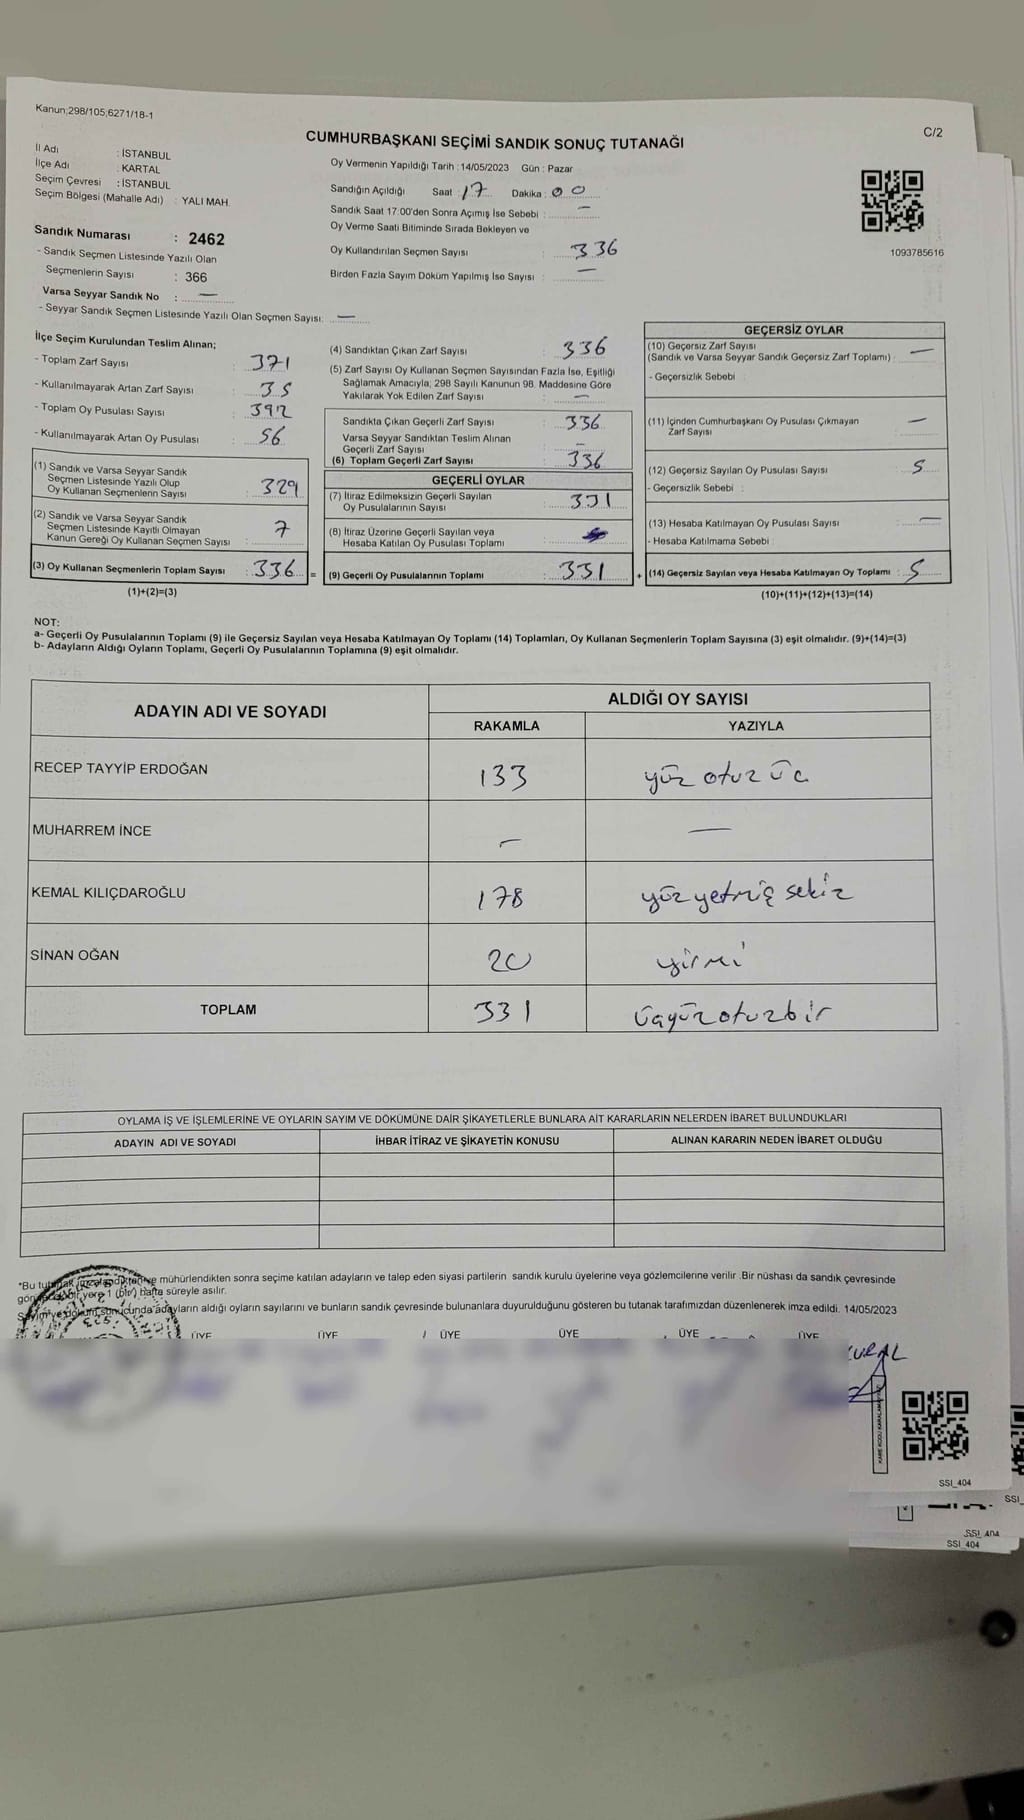 Kanun;298/105;6271/18-1
C/2
CUMHURBAŞKANI SEÇİMİ SANDIK SONUÇ TUTANAĞI
İl Adı : İSTANBUL
İlçe Adı : KARTAL
Seçim Çevresi : İSTANBUL
Seçim Bölgesi (Mahalle Adı) : YALI MAH.
Oy Vermenin Yapıldığı Tarih :14/05/2023 Gün : Pazar
Sandığın Açıldığı Saat : 17 Dakika : 00
Sandık Saat 17:00'den Sonra Açımış İse Sebebi : –
Oy Verme Saati Bitiminde Sırada Bekleyen ve
Oy Kullandırılan Seçmen Sayısı : 336
Birden Fazla Sayım Döküm Yapılmış İse Sayısı : –
1093785616
Sandık Numarası : 2462
- Sandık Seçmen Listesinde Yazılı Olan
Seçmenlerin Sayısı : 366
Varsa Seyyar Sandık No : –
- Seyyar Sandık Seçmen Listesinde Yazılı Olan Seçmen Sayısı: –
İlçe Seçim Kurulundan Teslim Alınan;
- Toplam Zarf Sayısı : 371
- Kullanılmayarak Artan Zarf Sayısı : 35
- Toplam Oy Pusulası Sayısı : 392
- Kullanılmayarak Artan Oy Pusulası : 56
(1) Sandık ve Varsa Seyyar Sandık
Seçmen Listesinde Yazılı Olup
Oy Kullanan Seçmenlerin Sayısı : 329
(2) Sandık ve Varsa Seyyar Sandık
Seçmen Listesinde Kayıtlı Olmayan
Kanun Gereği Oy Kullanan Seçmen Sayısı : 7
(3) Oy Kullanan Seçmenlerin Toplam Sayısı : 336
(1)+(2)=(3)
(4) Sandıktan Çıkan Zarf Sayısı : 336
(5) Zarf Sayısı Oy Kullanan Seçmen Sayısından Fazla İse, Eşitliği
Sağlamak Amacıyla; 298 Sayılı Kanunun 98. Maddesine Göre
Yakılarak Yok Edilen Zarf Sayısı : –
Sandıkta Çıkan Geçerli Zarf Sayısı : 336
Varsa Seyyar Sandıktan Teslim Alınan
Geçerli Zarf Sayısı : –
(6) Toplam Geçerli Zarf Sayısı : 336
GEÇERLİ OYLAR
(7) İtiraz Edilmeksizin Geçerli Sayılan
Oy Pusulalarının Sayısı : 331
(8) İtiraz Üzerine Geçerli Sayılan veya
Hesaba Katılan Oy Pusulası Toplamı :
= (9) Geçerli Oy Pusulalarının Toplamı : 331
GEÇERSİZ OYLAR
(10) Geçersiz Zarf Sayısı
(Sandık ve Varsa Seyyar Sandık Geçersiz Zarf Toplamı) : –
- Geçersizlik Sebebi :
(11) İçinden Cumhurbaşkanı Oy Pusulası Çıkmayan
Zarf Sayısı : –
(12) Geçersiz Sayılan Oy Pusulası Sayısı : 5
- Geçersizlik Sebebi :
(13) Hesaba Katılmayan Oy Pusulası Sayısı : –
- Hesaba Katılmama Sebebi :
+ (14) Geçersiz Sayılan veya Hesaba Katılmayan Oy Toplamı : 5
(10)+(11)+(12)+(13)=(14)
NOT:
a- Geçerli Oy Pusulalarının Toplamı (9) ile Geçersiz Sayılan veya Hesaba Katılmayan Oy Toplamı (14) Toplamları, Oy Kullanan Seçmenlerin Toplam Sayısına (3) eşit olmalıdır. (9)+(14)=(3)
b- Adayların Aldığı Oyların Toplamı, Geçerli Oy Pusulalarının Toplamına (9) eşit olmalıdır.
ADAYIN ADI VE SOYADI ALDIĞI OY SAYISI
RAKAMLA YAZIYLA
RECEP TAYYİP ERDOĞAN 133 yüz otuz üç
MUHARREM İNCE – –
KEMAL KILIÇDAROĞLU 178 yüz yetmiş sekiz
SİNAN OĞAN 20 yirmi
TOPLAM 331 üçyüzotuzbir
OYLAMA İŞ VE İŞLEMLERİNE VE OYLARIN SAYIM VE DÖKÜMÜNE DAİR ŞİKAYETLERLE BUNLARA AİT KARARLARIN NELERDEN İBARET BULUNDUKLARI
ADAYIN ADI VE SOYADI İHBAR İTİRAZ VE ŞİKAYETİN KONUSU ALINAN KARARIN NEDEN İBARET OLDUĞU
*Bu mühürlendikten sonra seçime katılan adayların ve talep eden siyasi partilerin sandık kurulu üyelerine veya gözlemcilerine verilir .Bir nüshası da sandık çevresinde
yere 1 (bir) hafta süreyle asılır.
adayların aldığı oyların sayılarını ve bunların sandık çevresinde bulunanlara duyurulduğunu gösteren bu tutanak tarafımızdan düzenlenerek imza edildi. 14/05/2023
ÜYE ÜYE ÜYE ÜYE ÜYE ÜYE
SSI_404
SSI_
SSI_404
SSI_404